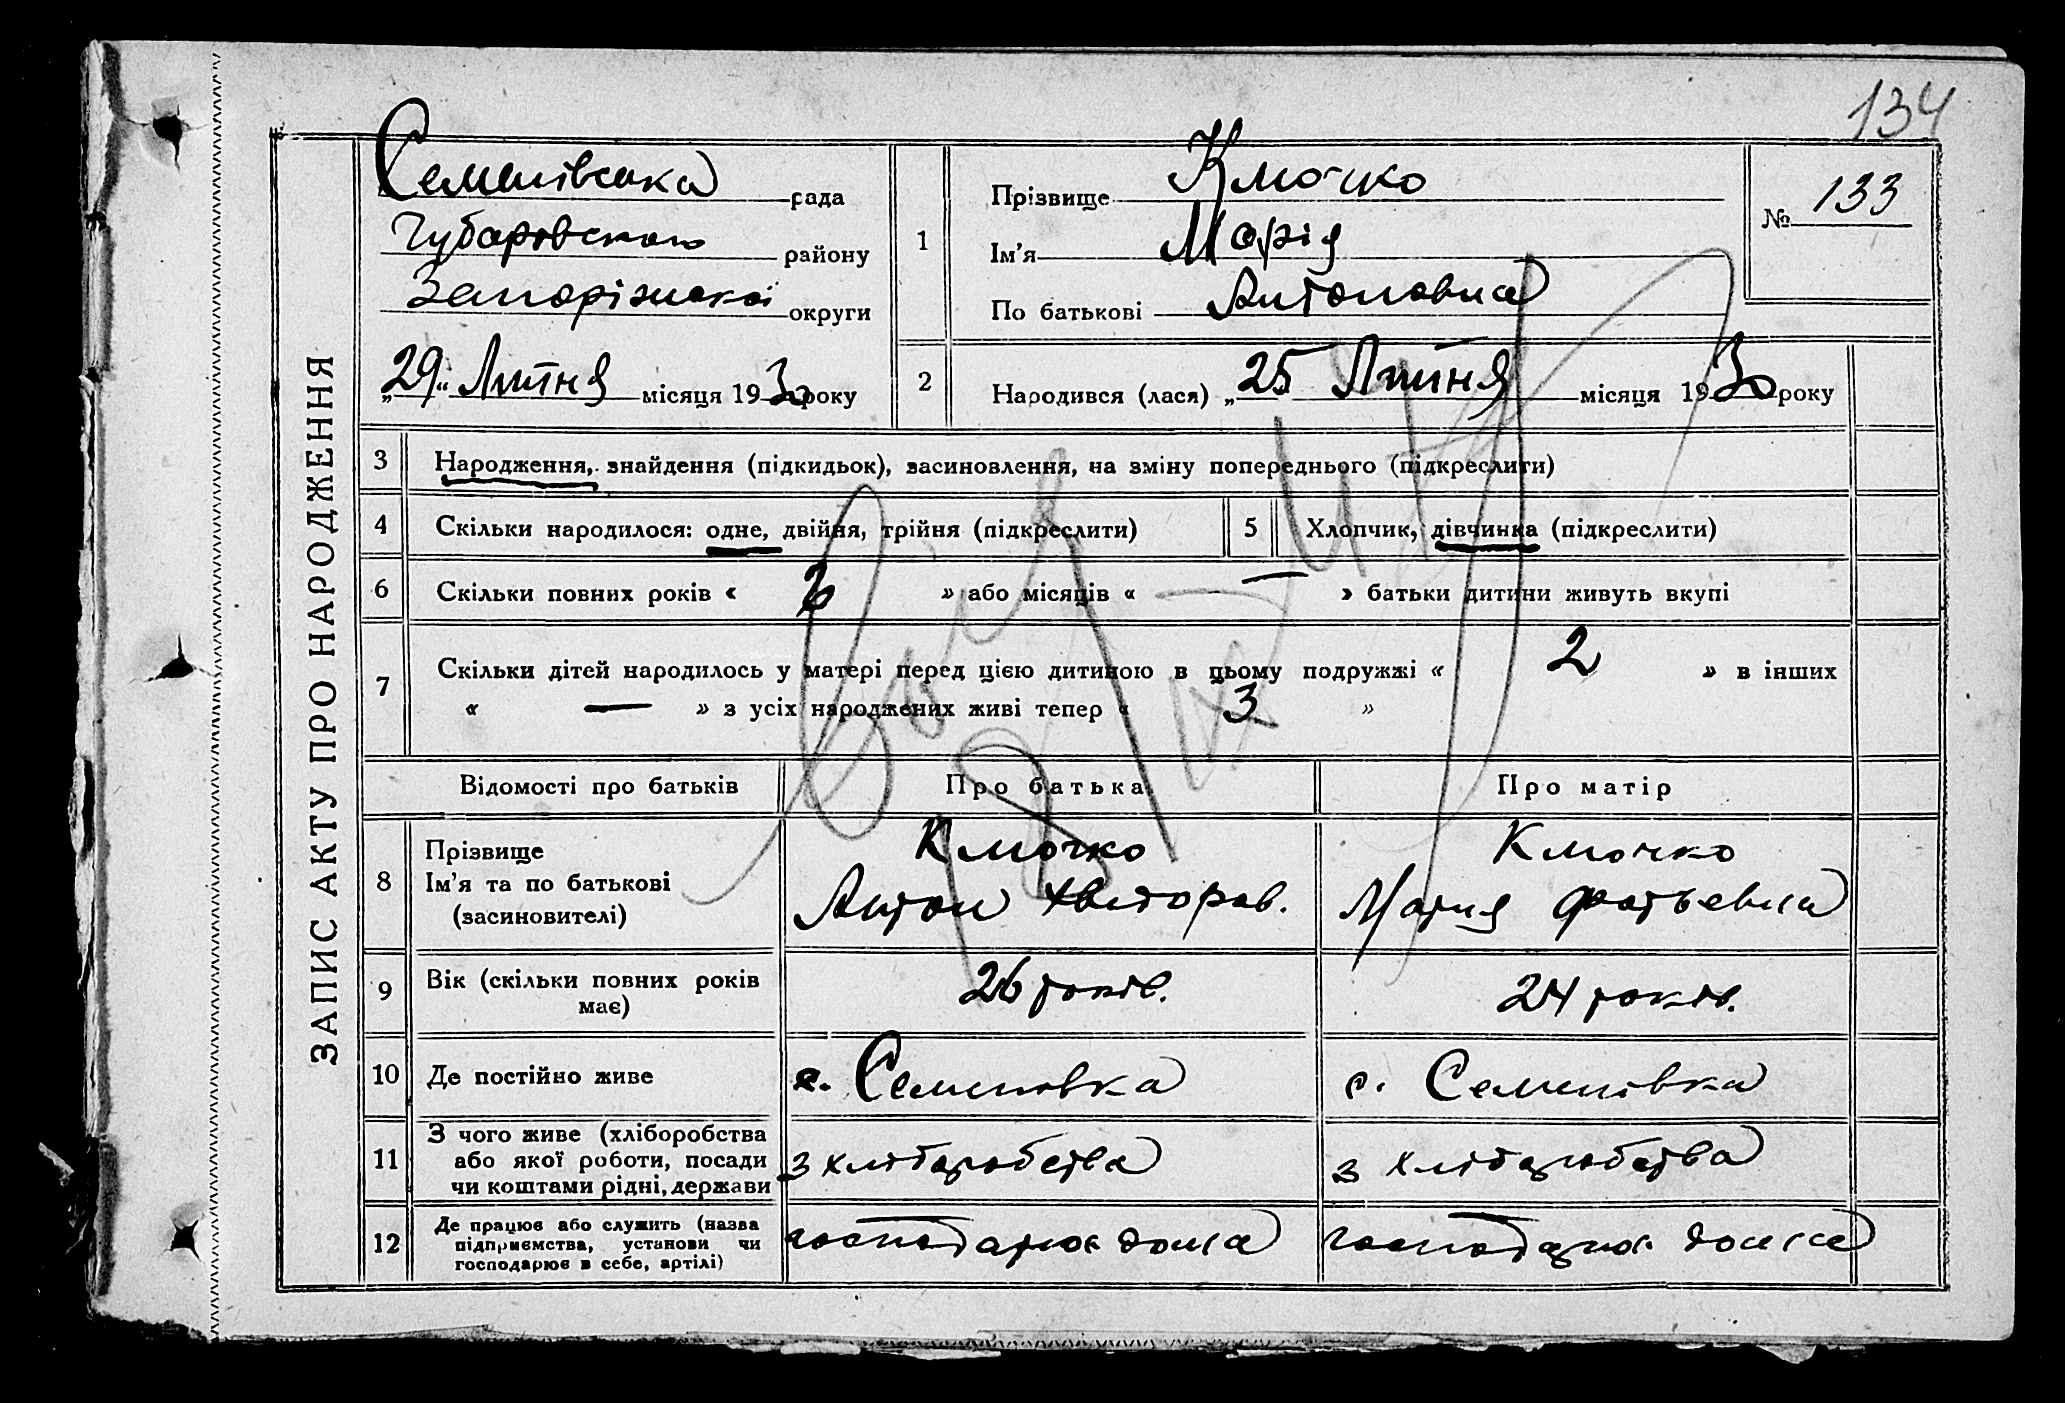 134
ЗАПИС АКТУ ПРО НАРОДЖЕННЯ
Семенівська рада
Губаровского району
Запоріжскої округи
„29“ Липня місяця 1930 року
1
Прізвище Клочко
Ім’я Марія
По батькові Антоновна
№ 133
2
Народився (лася) „25 Липня місяця 1930 року
3 Народження, знайдення (підкидьок), засиновлення, на зміну попереднього (підкреслити)
4 Скільки народилося: одне, двійня, трійня (підкреслити) 5 Хлопчик, дівчинка (підкреслити)
6 Скільки повних років « » або місяців « — » батьки дитини живуть вкупі
7 Скільки дітей народилось у матері перед цією дитиною в цьому подружжі « 2 » в інших
« — » з усіх народжених живі тепер « 3 »
Відомості про батьків Про батька Про матір
8 Прізвище Клочко Клочко
Ім’я та по батькові Антон Хведоров. Мария Фотъевна
(засиновителі)
9 Вік (скільки повних років має) 26 років. 24 років.
10 Де постійно живе с. Семеновка с. Семенівка
11 З чого живе (хліборобства з хліборобства з хліборобства
або якої роботи, посади
чи коштами рідні, держави
12 Де працює або служить (назва господарює дома господарює дома
підприємства, установи чи
господарює в себе, артілі)